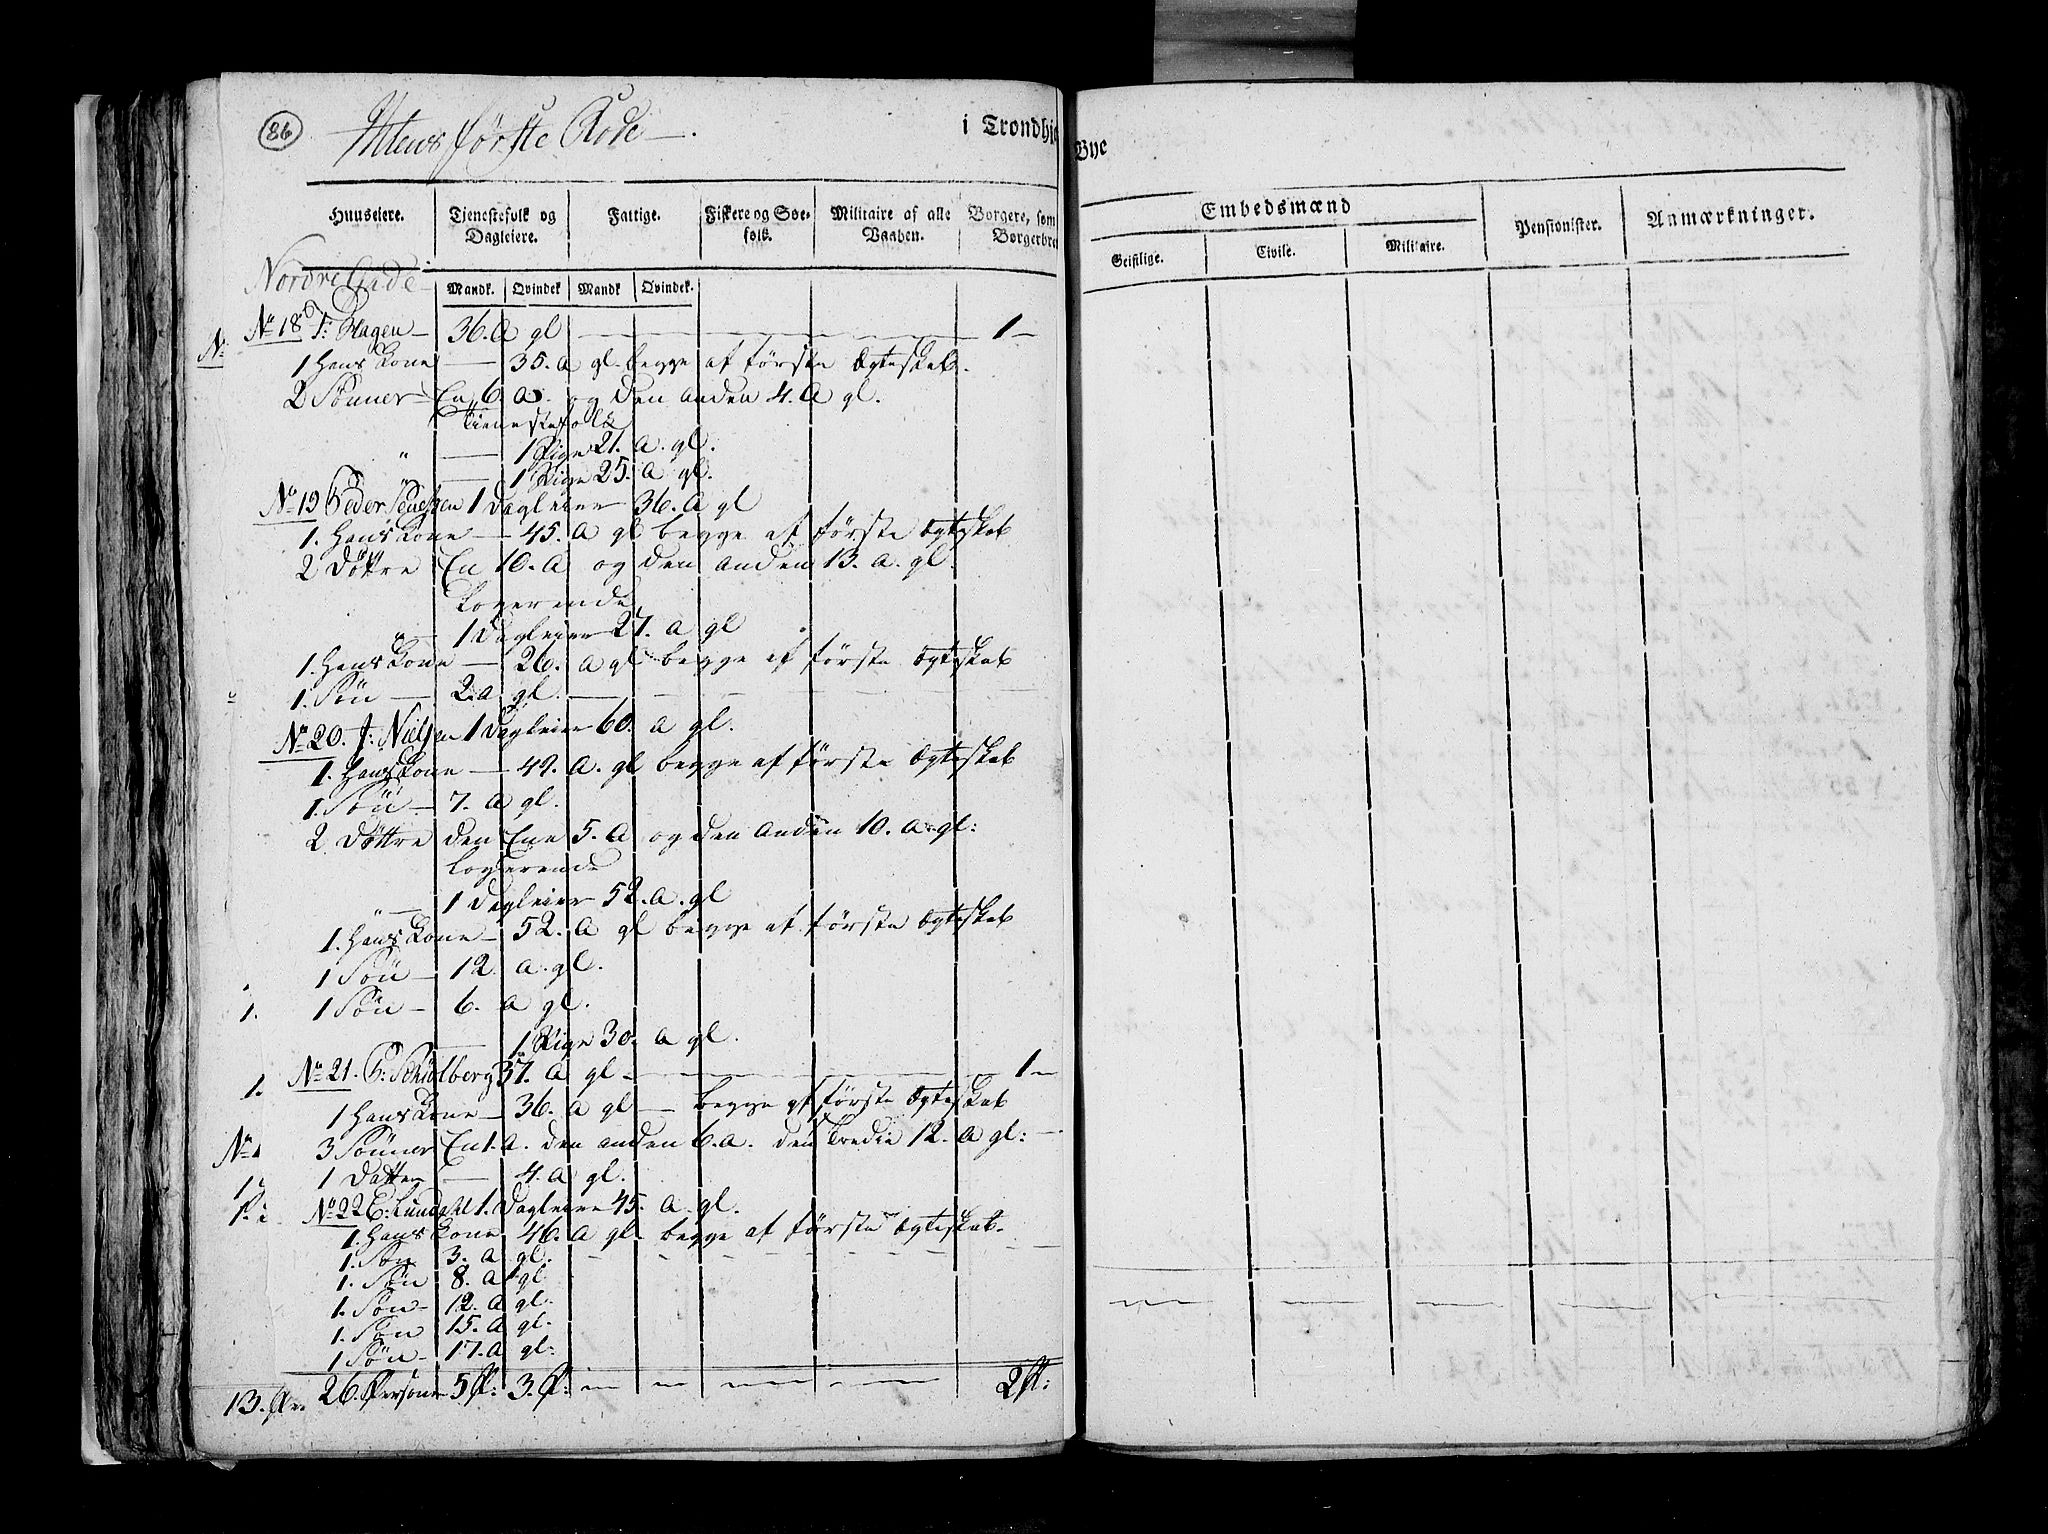 86
Ihlens første Rode
i Trondhje
Bye
Huuseiere. Tjenestefolk og Dagleiere. Fattige. Fiskere og Søefolk. Militaire af alle Vaaben. Borgere, som Borgerbre
Embedsmænd Pensionister. Anmærkninger.
Geistlige. Civile. Militaire.
Nordre Gade
Mandk. Qvindek Mandk Qvindek.
No 18 Hagen — 36. A gl — 1 —
1 Hans Kone — 35. a gl. begge af første Ægteskab.
2 Sønner — En 6. a. og den anden 4. A gl.
Tienestefolk
" — 1 Pige 21. a. gl.
" — 1 Pige 25. a gl.
No 19 Peder 1 Dagleier 36. A gl
1. Hans Kone — 45. a gl begge af første Ægteskab
2 Døttre En 10. A og den anden 13. a. gl.
Logerende
" 1 Dagleier 27. a gl
1. Hans Kone — 26. a gl begge af første Ægteskab
1. Søn — 2. a gl. —
No 20. J: Nielsen 1 Dagleier 60. a gl.
1. Hans Kone — 49. A. gl begge af første Ægteskab
1. Søn — 7. a gl.
2 Døttre den Ene 5. A og den Anden 10. A. gl:
Logerende
" — 1 Dagleier 52. A. gl
1. Hans Kone — 52. A gl begge af første Ægteskab
1 Søn — 12. a. gl.
1. 1 Søn — 6. a gl.
— 1 Pige 30. a gl.
1. No 21. Schiølberg 37. A gl — 1 —
1 Hans Kone — 36. A gl — begge af første Ægteskab
No 3 Sønner En 1. A. den anden 6. a. den tredie 12. A gl: —
1 Datter — 4. A gl.
No 22 Lundahl 1. Dagleier 45. A. gl.
1. Hans Kone 46. A gl begge af første Ægteskab.
1. Søn 3. a gl.
1. Søn 8. A gl
1. Søn — 12. A gl.
1. Søn 15. A gl.
1 Søn — 17. A gl:
13. 26. Persone 5 P: 3. P: — 2 P: